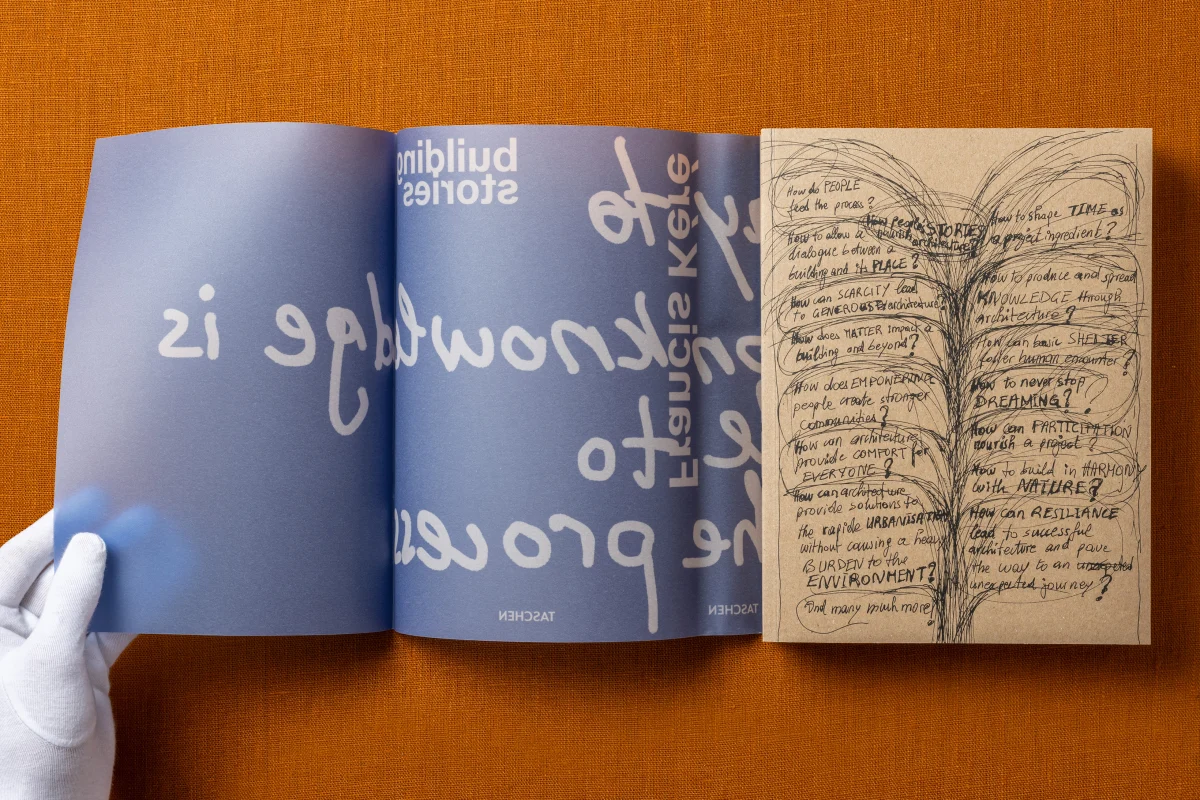 building
stories
to
knowledge is
to
he process
Francis Kéré
TASCHEN
TASCHEN
How do PEOPLE
feed the process?
How to allow a
dialogue between a
building and its PLACE?
How can SCARCITY lead
to GENEROUS architecture?
How does MATTER impact a
building and beyond?
How does EMPOWERING
people create stronger
communities?
How can architecture
provide COMFORT for
EVERYONE?
How can architecture
provide solutions to
the rapide URBANISATION
without causing a heavy
BURDEN to the
ENVIRONMENT?
And many much more!
How people's STORIES
nourish architecture?
How to shape TIME as
a project ingredient?
How to produce and spread
KNOWLEDGE through
architecture?
How can basic SHELTER
foster human encounter?
How to never stop
DREAMING?
How can PARTICIPATION
nourish a project?
How to build in HARMONY
with NATURE?
How can RESILIANCE
lead to successful
architecture and pave
the way to an
unexpected journey?